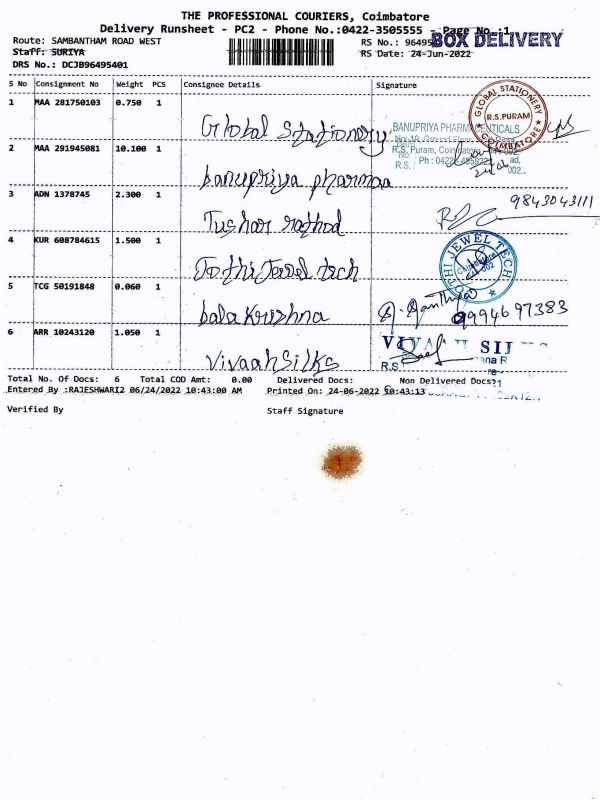 THE PROFESSIONAL COURIERS, Coimbatore
Delivery Runsheet - PC2 - Phone No.:0422-3505555 - Page No.:1
BOX DELIVERY
Route: SAMBANTHAM ROAD WEST
RS No.: 96495
Staff: SURIYA
RS Date: 24-Jun-2022
DRS No.: DCJB96495401
S No Consignment No Weight PCS Consignee Details Signature
1 MAA 281750103 0.750 1 Global Stationery
GLOBAL STATIONERY R.S.PURAM COIMBATORE
2 MAA 291945081 10.100 1 banupriya pharmaa
BANUPRIYA PHARMACEUTICALS
R.S. Puram, Coimbatore
Ph : 0422
3 ADN 1378745 2.300 1 Tushar rathod
9843043111
4 KUR 608784615 1.500 1 Jothi Jewel tech
JOTHI JEWEL TECH
5 TCG 50191848 0.060 1 bala Krishna
9994697383
6 ARR 10243120 1.050 1 Vivaah Silks
R.S
Total No. Of Docs: 6 Total COD Amt: 0.00 Delivered Docs: Non Delivered Docs:
Entered By :RAJESHWARI2 06/24/2022 10:43:00 AM Printed On: 24-06-2022 10:43:13
Verified By Staff Signature